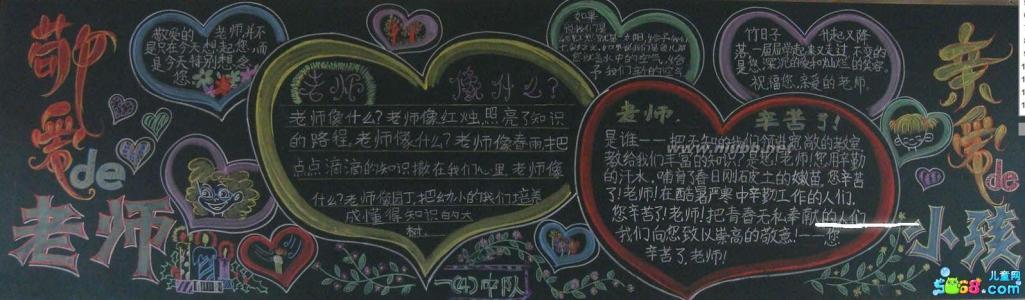 敬爱
de
老师
敬爱的 老师并不
是只在今天想起您,而
是今天特别想念
您
老师 像什么?
老师像什么?老师像红烛,照亮了知识
的路程。老师像什么?老师像春雨,把
点点滴滴的知识撒在我们心里。老师像
什么?老师像园丁,把幼小的我们培养
成懂得知识的大
树。
如果
给予我们
予我们新的空气
老师, 辛苦了!
是谁——把无知的我们领进宽敞的教室,
教给我们丰富的知识?是您!老师!您用辛勤
的汗水,哺育了春日刚破土的嫩苗,您辛苦
了!老师!在酷暑严寒中辛勤工作的人们,
您辛苦了!老师!把青春无私奉献的人们
我们向您致以崇高的敬意!——您
辛苦了,老师!
竹日子 升起又降
落,一届届学起来又走过,不变的
是您深沉的爱和灿烂的笑容。
祝福您,亲爱的老师。
亲爱
de
小孩
一(4)中队
www.mubo.net
儿童网
5068.com